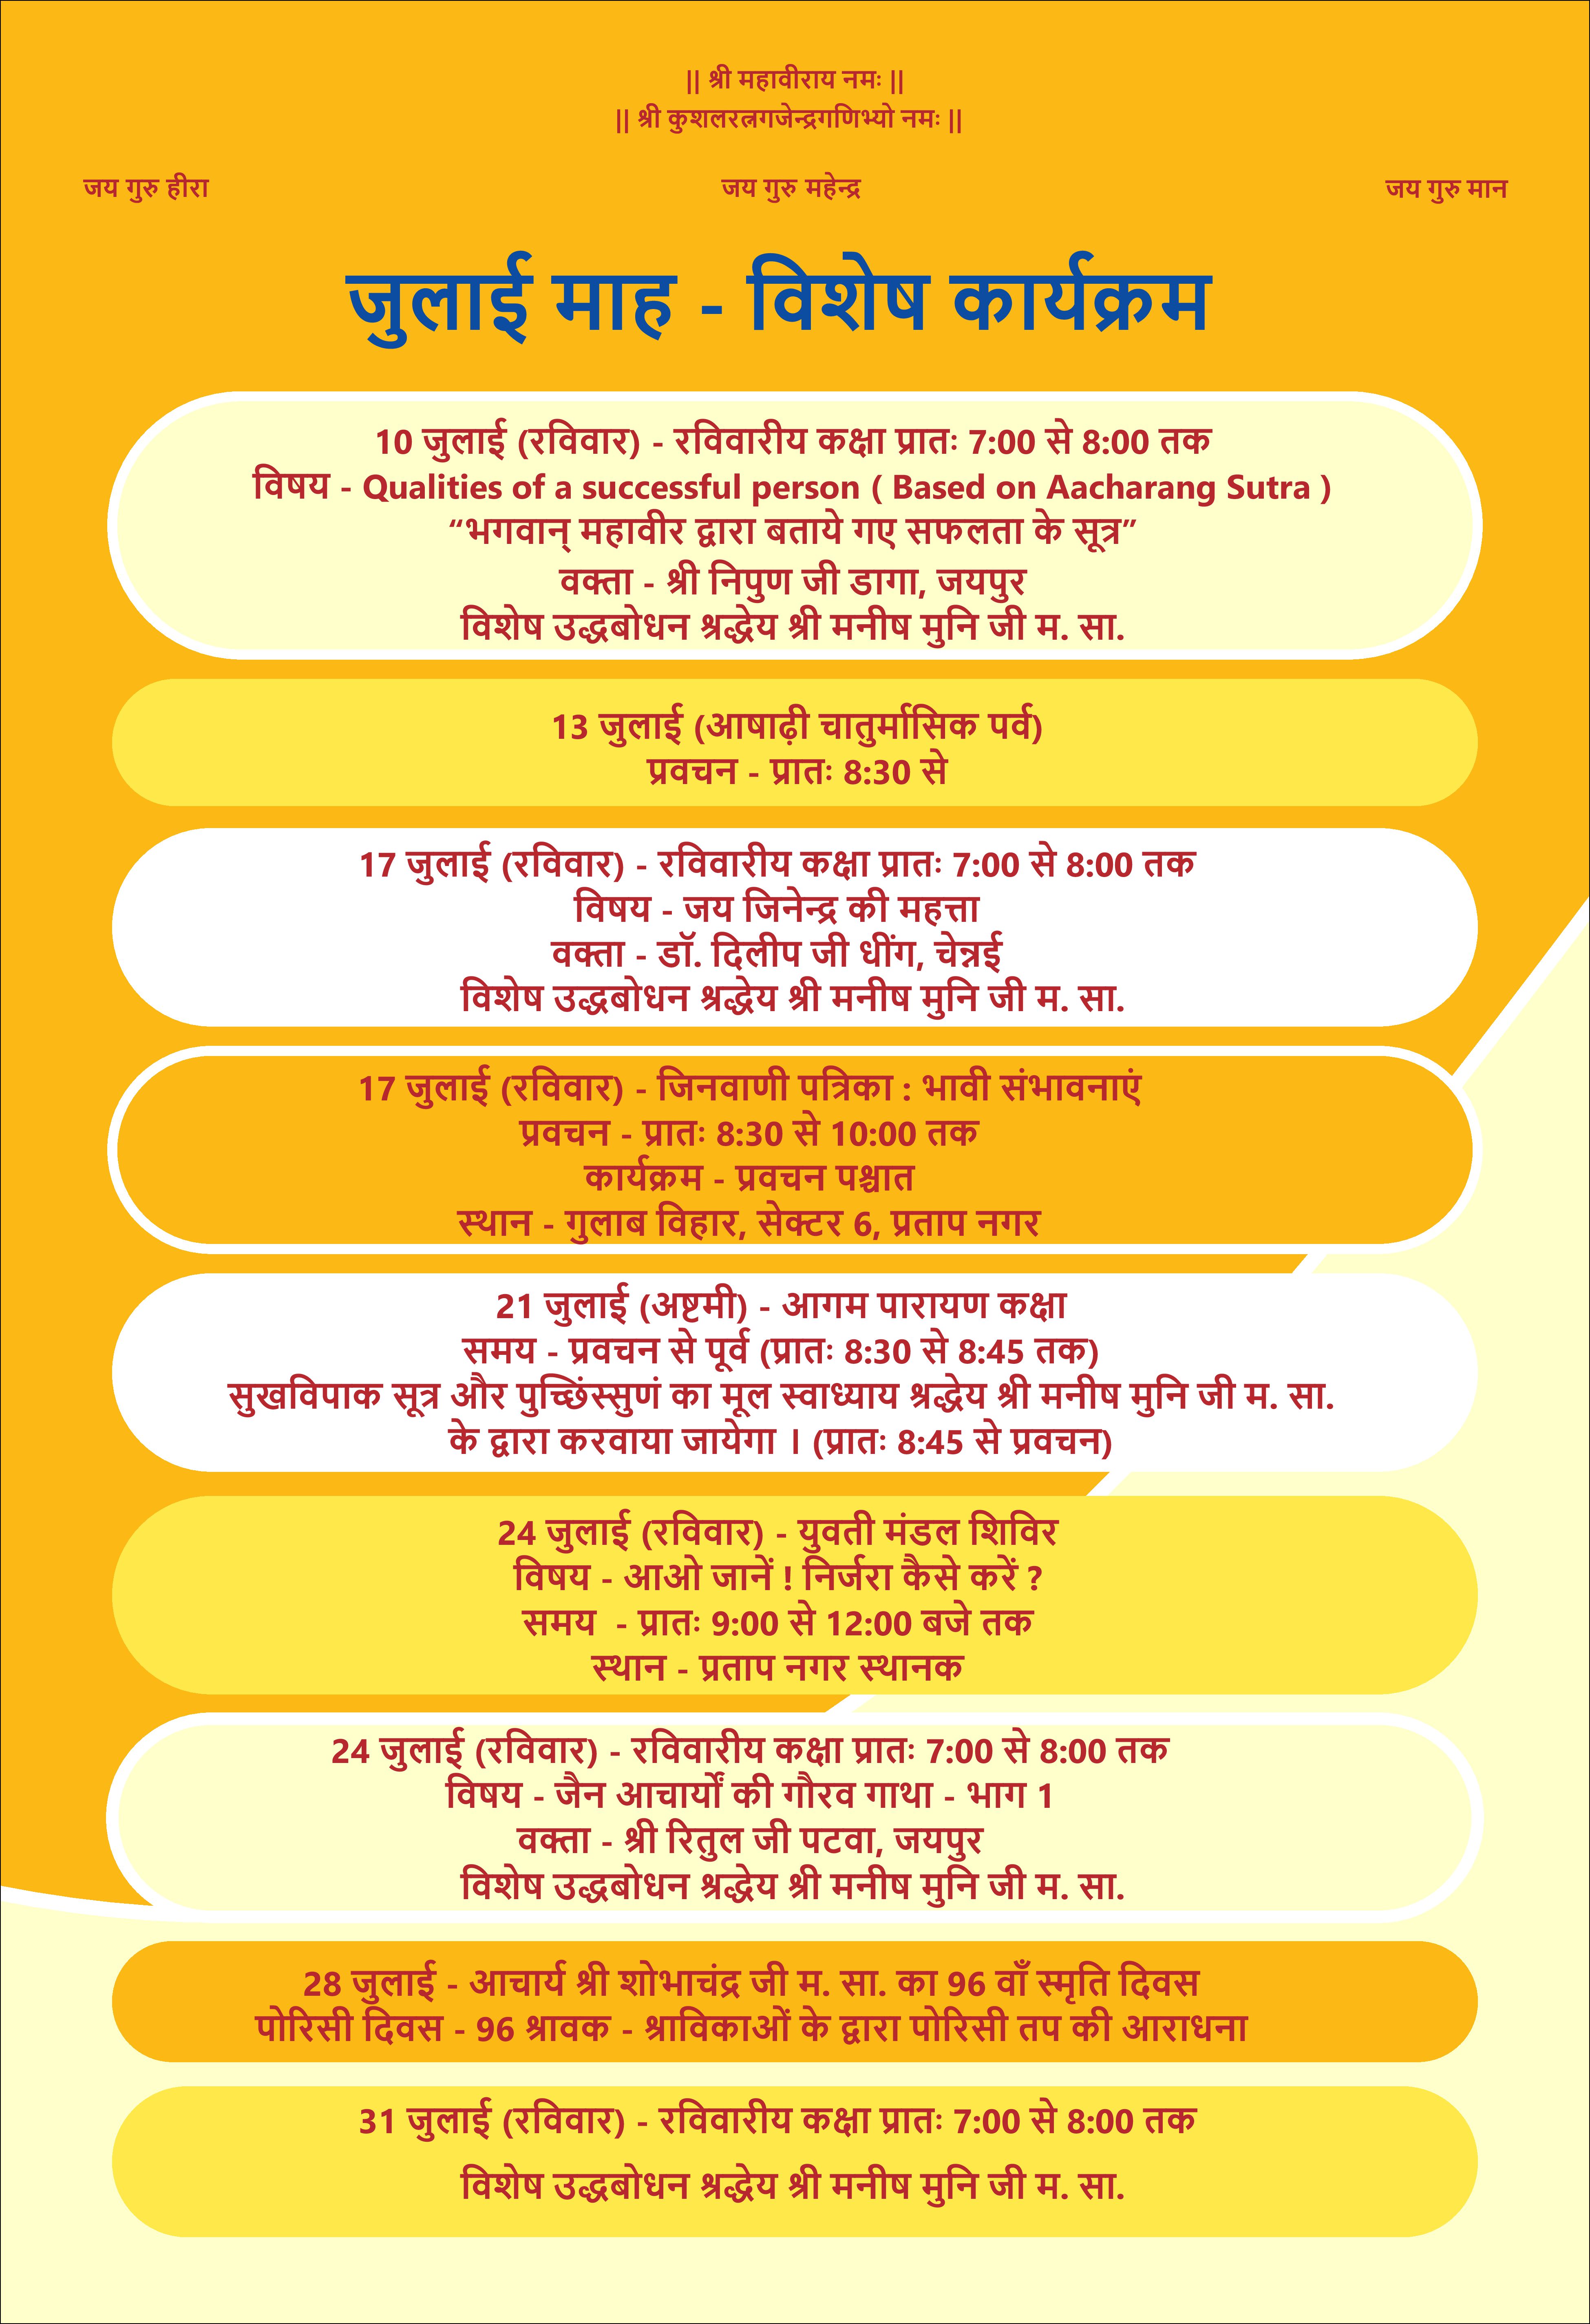 || श्री महावीराय नमः ||
|| श्री कुशलरत्नगजेन्द्रगणिभ्यो नमः ||
जय गुरु हीरा जय गुरु महेन्द्र जय गुरु मान
जुलाई माह - विशेष कार्यक्रम
10 जुलाई (रविवार) - रविवारीय कक्षा प्रातः 7:00 से 8:00 तक
विषय - Qualities of a successful person ( Based on Aacharang Sutra )
“भगवान् महावीर द्वारा बताये गए सफलता के सूत्र”
वक्ता - श्री निपुण जी डागा, जयपुर
विशेष उद्धबोधन श्रद्धेय श्री मनीष मुनि जी म. सा.
13 जुलाई (आषाढ़ी चातुर्मासिक पर्व)
प्रवचन - प्रातः 8:30 से
17 जुलाई (रविवार) - रविवारीय कक्षा प्रातः 7:00 से 8:00 तक
विषय - जय जिनेन्द्र की महत्ता
वक्ता - डॉ. दिलीप जी धींग, चेन्नई
विशेष उद्धबोधन श्रद्धेय श्री मनीष मुनि जी म. सा.
17 जुलाई (रविवार) - जिनवाणी पत्रिका : भावी संभावनाएं
प्रवचन - प्रातः 8:30 से 10:00 तक
कार्यक्रम - प्रवचन पश्चात
स्थान - गुलाब विहार, सेक्टर 6, प्रताप नगर
21 जुलाई (अष्टमी) - आगम पारायण कक्षा
समय - प्रवचन से पूर्व (प्रातः 8:30 से 8:45 तक)
सुखविपाक सूत्र और पुच्छिंस्सुणं का मूल स्वाध्याय श्रद्धेय श्री मनीष मुनि जी म. सा.
के द्वारा करवाया जायेगा । (प्रातः 8:45 से प्रवचन)
24 जुलाई (रविवार) - युवती मंडल शिविर
विषय - आओ जानें ! निर्जरा कैसे करें ?
समय - प्रातः 9:00 से 12:00 बजे तक
स्थान - प्रताप नगर स्थानक
24 जुलाई (रविवार) - रविवारीय कक्षा प्रातः 7:00 से 8:00 तक
विषय - जैन आचार्यों की गौरव गाथा - भाग 1
वक्ता - श्री रितुल जी पटवा, जयपुर
विशेष उद्धबोधन श्रद्धेय श्री मनीष मुनि जी म. सा.
28 जुलाई - आचार्य श्री शोभाचंद्र जी म. सा. का 96 वाँ स्मृति दिवस
पोरिसी दिवस - 96 श्रावक - श्राविकाओं के द्वारा पोरिसी तप की आराधना
31 जुलाई (रविवार) - रविवारीय कक्षा प्रातः 7:00 से 8:00 तक
विशेष उद्धबोधन श्रद्धेय श्री मनीष मुनि जी म. सा.